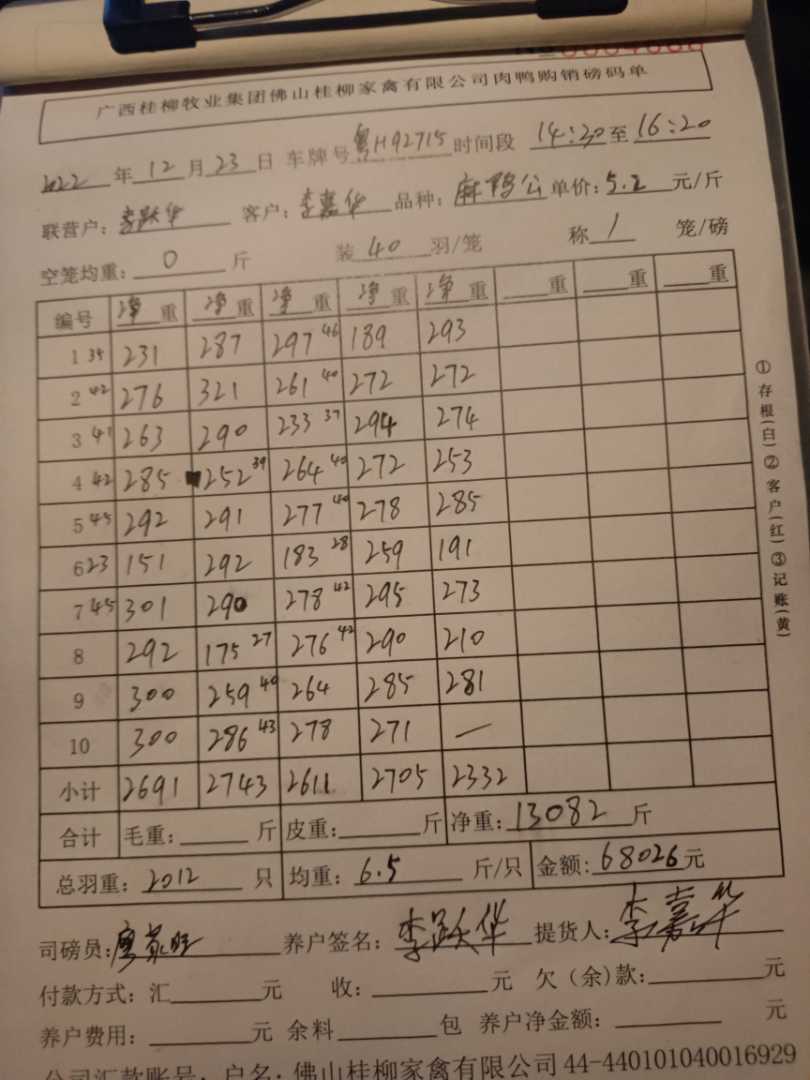 广西桂柳牧业集团佛山桂柳家禽有限公司肉鸭购销磅码单
2022年12月23日 车牌号粤H92715时间段 14:20至16:20
联营户:李跃华 客户:李嘉华 品种:麻鸭公 单价:5.2元/斤
空笼均重:0斤 装40羽/笼 称1笼/磅
编号 净重 净重 净重 净重 净重 重 重 重
1 35 231 287 297 46 189 293
2 42 276 321 261 40 272 272
3 41 263 290 233 37 294 274
4 42 285 252 39 264 40 272 253
5 45 292 291 277 40 278 285
6 23 151 292 183 28 259 191
7 45 301 290 278 42 295 273
8 292 175 27 276 42 290 210
9 300 259 40 264 285 281
10 300 286 43 278 271 —
小计 2691 2743 2611 2705 2332
合计 毛重: 斤 皮重: 斤 净重:13082斤
总羽重:2012只 均重:6.5斤/只 金额:68026元
司磅员: 养户签名:李跃华 提货人:李嘉华
付款方式:汇 元 收: 元 欠(余)款: 元
养户费用: 元 余料 包 养户净金额: 元
公司汇款账号:户名:佛山桂柳家禽有限公司 44-440101040016929
①存根(白)②客户(红)③记账(黄)